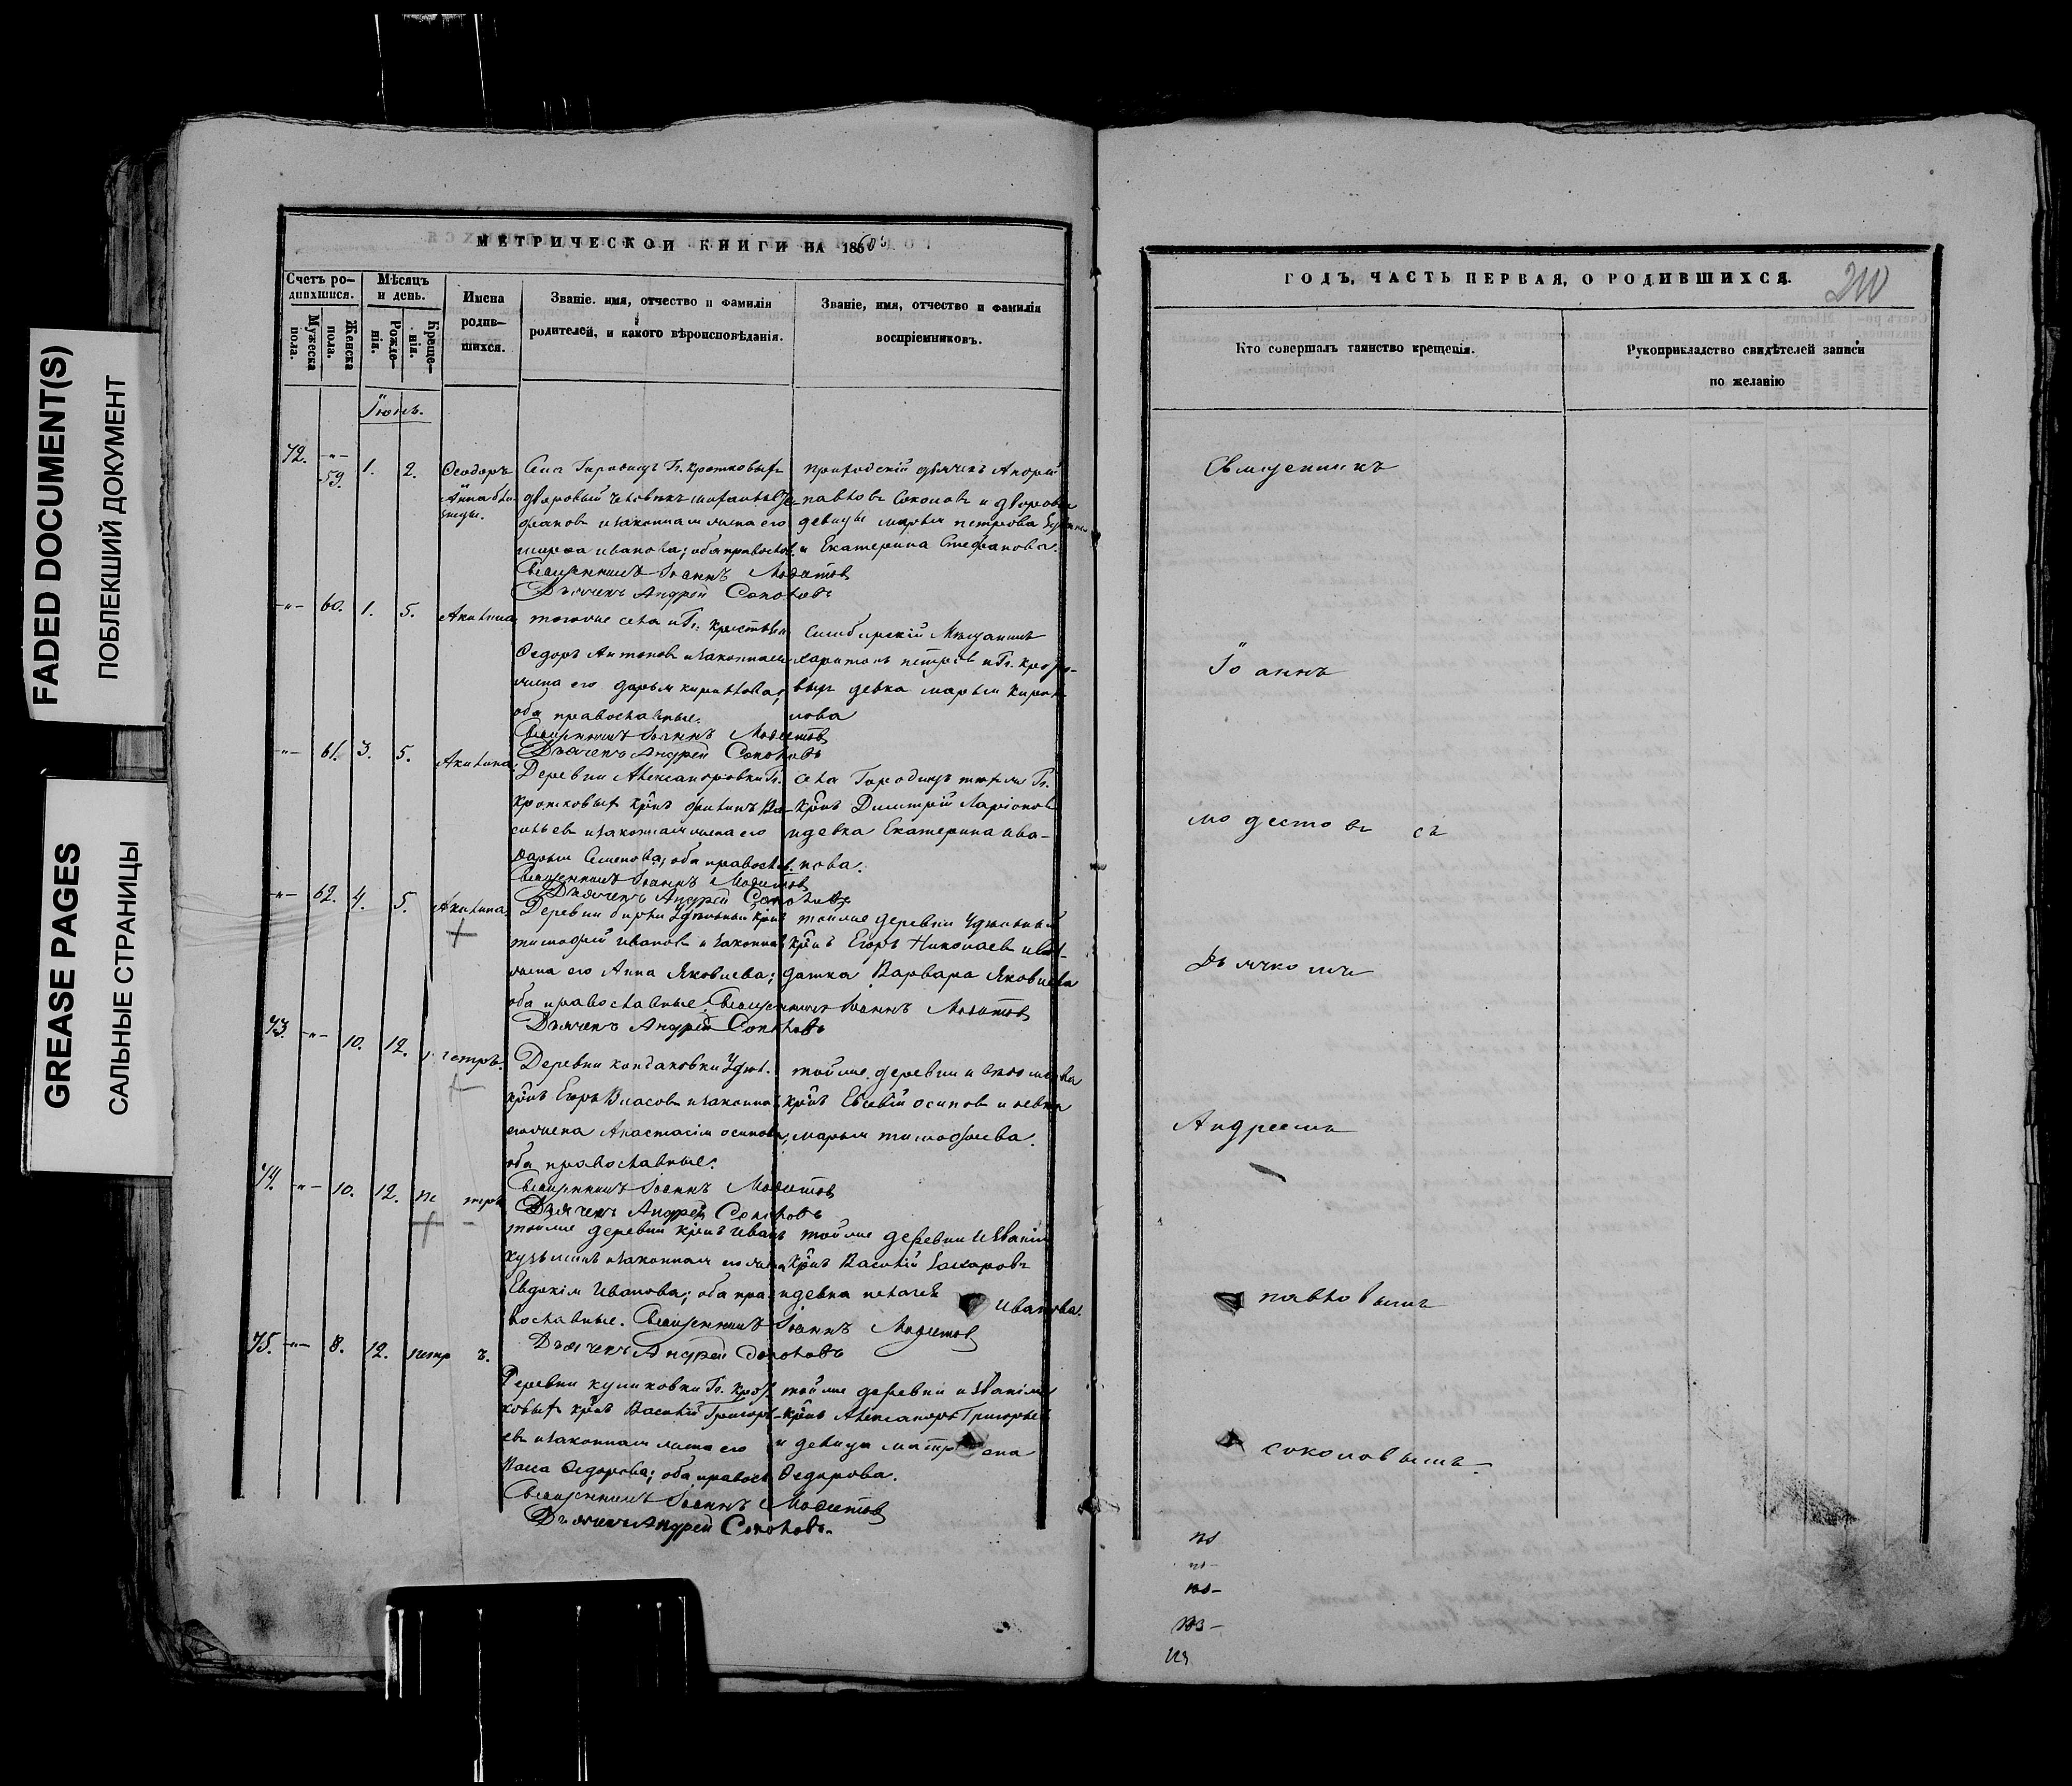 FADED DOCUMENT(S)
ПОБЛЕКШИЙ ДОКУМЕНТ
GREASE PAGES
САЛЬНЫЕ СТРАНИЦЫ
МЕТРИЧЕСКОЙ КНИГИ НА 1860
Счетъ ро-
дившихся.
Мѣсяцъ
и день.
Мужеска
пола.
Женска
пола.
Рожде-
нія.
Креще-
нія.
Имена
родив-
шихся.
Званіе, имя, отчество и фамилія
родителей, и какого вѣроисповѣданія.
Званіе, имя, отчество и фамилія
воспріемниковъ.
Іюнь.
72. 59. 1. 2. Ѳеодоръ
Анна
Села Городищъ Г. Кротковыхъ
дворовый человѣкъ
и законная жена его
Иванова; обѣ православ.
Священникъ Іоаннъ Модестов
Дьячекъ Андрей Соколовъ
приходскій дьячекъ Андрей
Павловъ Соколовъ и
девицы Марья Петрова
и Екатерина Стефанова.
-"- 60. 1. 5. Акилина
того же села Г. крестьян
Ѳедоръ Антоновъ и законная
жена его Дарья Кирилова;
оба православные.
Священникъ Іоаннъ Модестов
Дьячекъ Андрей Соколовъ
Симбирскій Мѣщанинъ
Харитонъ Петровъ и Г. Кротко-
выхъ девка Марья Кири-
лова
-"- 61. 3. 5. Акилина
Деревни Александровки Г.
Кротковыхъ крнъ Филипъ Ва-
сильевъ и законная жена его
Дарья Семенова; оба православ.
Священникъ Іоаннъ Модестов
Дьячекъ Андрей Соколовъ
села Городищъ тѣхъ же Г.
крнъ Димитрій Ларіоновъ
и девка Екатерина Ива-
нова.
-"- 62. 4. 5. Акилина
Деревни Бирли Удѣльный крнъ
Тимофей Ивановъ и законная
жена его Анна Яковлева;
оба православные. Священникъ Іоаннъ Модестов
Дьячекъ Андрей Соколовъ
той же деревни Удѣльный
крнъ Егоръ Николаевъ и
Варвара Яковлева
73. -"- 10. 12. Петръ.
Деревни Кондаковки Удѣл.
крнъ Егоръ Власовъ и законная
его жена Анастасія Осипова;
оба православные.
Священникъ Іоаннъ Модестов
Дьячекъ Андрей Соколовъ
той же деревни и
крнъ Евсевій Осиповъ и девка
Марья Тимофеева.
74. -"- 10. 12. Петръ
той же деревни крнъ Иванъ
Кузьминъ и законная его жена
Евдокія Иванова; оба пра-
вославные. Священникъ Іоаннъ Модестов
Дьячекъ Андрей Соколовъ
той же деревни и званія
крнъ Василій Захаровъ
и девка Пелагея Иванова.
75. -"- 8. 12. Петръ.
Деревни Куликовки Г. Крот-
ковыхъ крнъ Василій Григорь-
евъ и законная жена его
Ѳедорова; оба правосл.
Священникъ Іоаннъ Модестов
Дьячекъ Андрей Соколовъ.
той же деревни и званія
крнъ Александръ Григорьевъ
и девица Матрена
Ѳедорова.
ГОДЪ, ЧАСТЬ ПЕРВАЯ, О РОДИВШИХСЯ.
210
Кто совершалъ таинство крещенія.
Рукоприкладство свидѣтелей записи
по желанію
Священникъ
Іоаннъ
Модестовъ съ
Дьячкомъ
Андреемъ
Павловымъ
Соколовымъ.